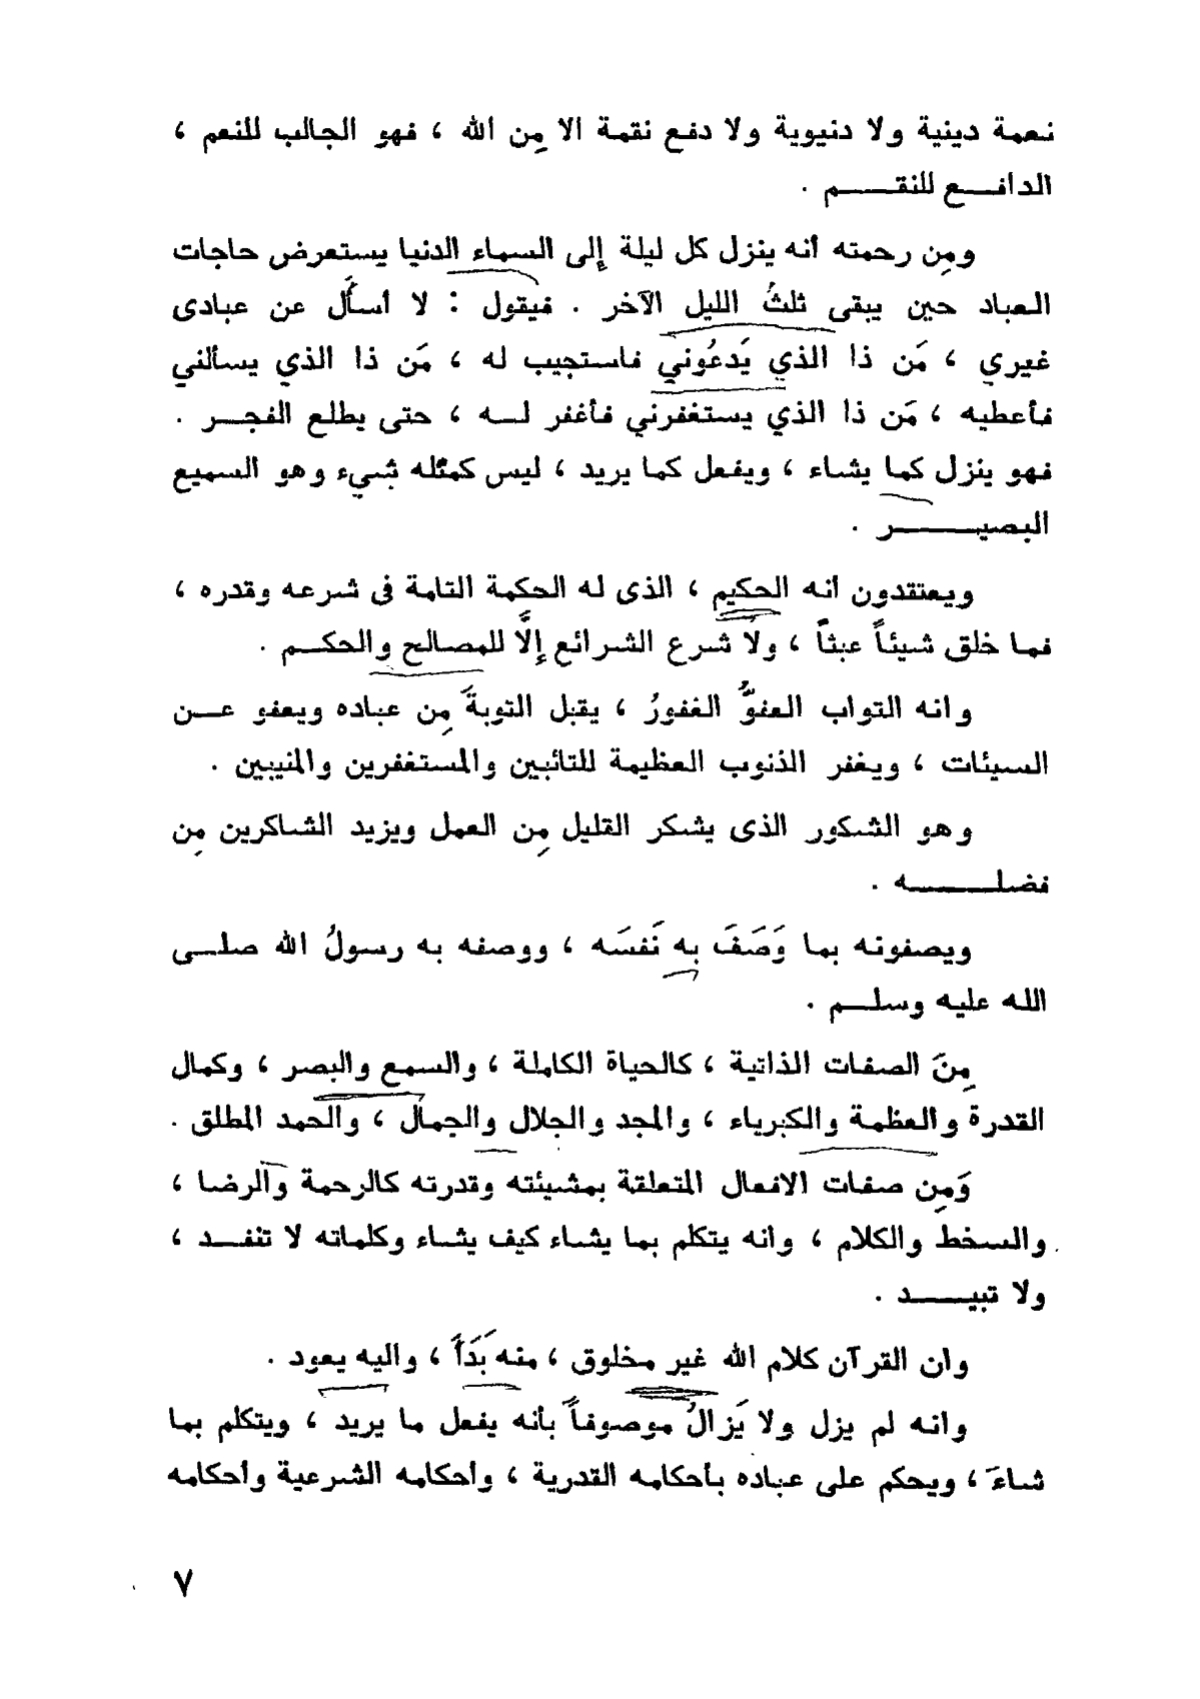 نعمة دينية ولا دنيوية ولا دفع نقمة الا مِن الله ، فهو الجالب للنعم ،
الدافـــع للنقـــــم .
ومِن رحمته أنه ينزل كل ليلة إلى السماء الدنيا يستعرض حاجات
العباد حين يبقى ثلثُ الليل الآخر . فيقول : لا أسأَل عن عبادى
غيري ، مَن ذا الذي يَدعُوني فاستجيب له ، مَن ذا الذي يسألني
فأعطيه ، مَن ذا الذي يستغفرني فأغفر لــه ، حتى يطلع الفجــر .
فهو ينزل كما يشاء ، ويفعل كما يريد ، ليس كمثله شيء وهو السميع
البصيـــــــر .
ويعتقدون أنه الحكيم ، الذى له الحكمة التامة فى شرعه وقدره ،
فما خلق شيئاً عبثاً ، ولا شرع الشرائع إلَّا للمصالح والحكــم .
وانه التواب العفوُّ الغفورُ ، يقبل التوبةَ مِن عباده ويعفو عــن
السيئات ، ويغفر الذنوب العظيمة للتائبين والمستغفرين والمنيبين .
وهو الشكور الذى يشكر القليل مِن العمل ويزيد الشاكرين مِن
فضلـــــــه .
ويصفونه بما وَصَفَ بِه نَفسَه ، ووصفه به رسولُ الله صلــى
الله عليه وسلـــم .
مِنَ الصفات الذاتية ، كالحياة الكاملة ، والسمع والبصر ، وكمال
القدرة والعظمة والكبرياء ، والمجد والجلال والجمال ، والحمد المطلق .
وَمِن صفات الافعال المتعلقة بمشيئته وقدرته كالرحمة والرضا ،
والسخط والكلام ، وانه يتكلم بما يشاء كيف يشاء وكلماته لا تنفــد ،
ولا تبيـــــد .
وان القرآن كلام الله غير مخلوق ، منه بَدَأَ ، واليه يعود .
وانه لم يزل ولا يَزالُ موصوفاً بأنه يفعل ما يريد ، ويتكلم بما
شاءَ ، ويحكم على عباده بأحكامه القدرية ، وأحكامه الشرعية وأحكامه
٧